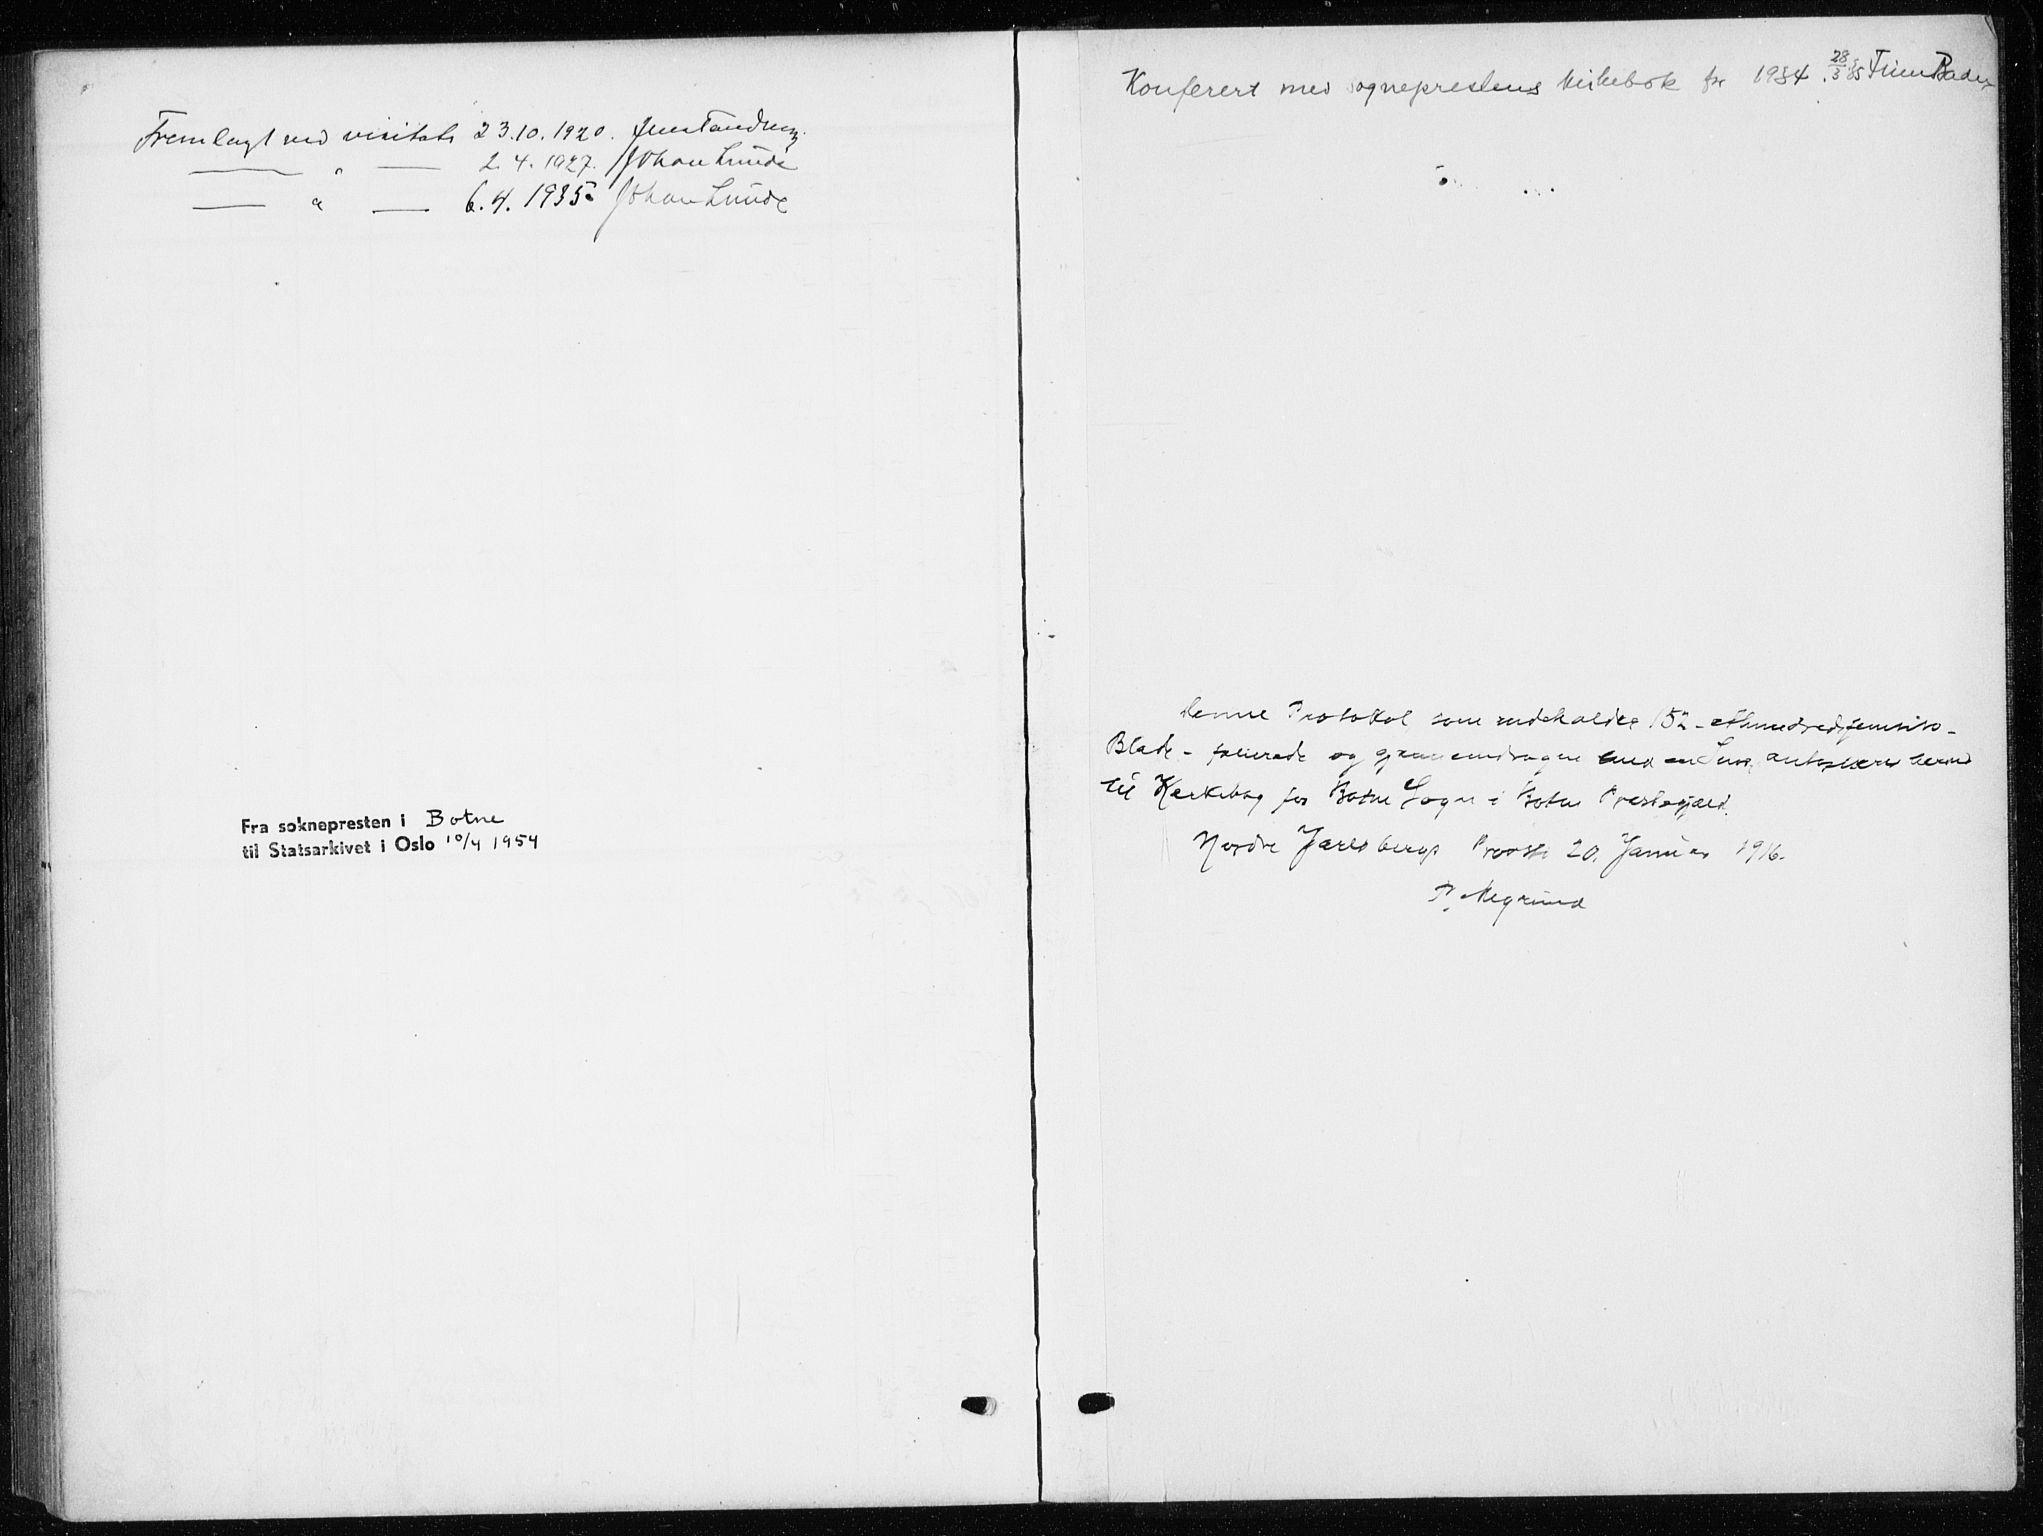 Fremlagt ved visitats 23.10.1920. Jens Tandberg
— " — 2.4.1927. Johan Lunde
— " — 6.4.1935. Johan Lunde
Fra soknepresten i Botne
til Statsarkivet i Oslo 10/4 1954
Konferert med sogneprestens kirkebok for 1934. 28/3 35
Denne Protokol som indeholder 152 - ethundredefemtito -
Blade - folierede og gjennemdragne med en Snor, autoriseres herved
til Kirkebog for Botne Sogn i Botne Prestegjæld.
Nordre Jarlsbergs Provsti 20. Januar 1916.